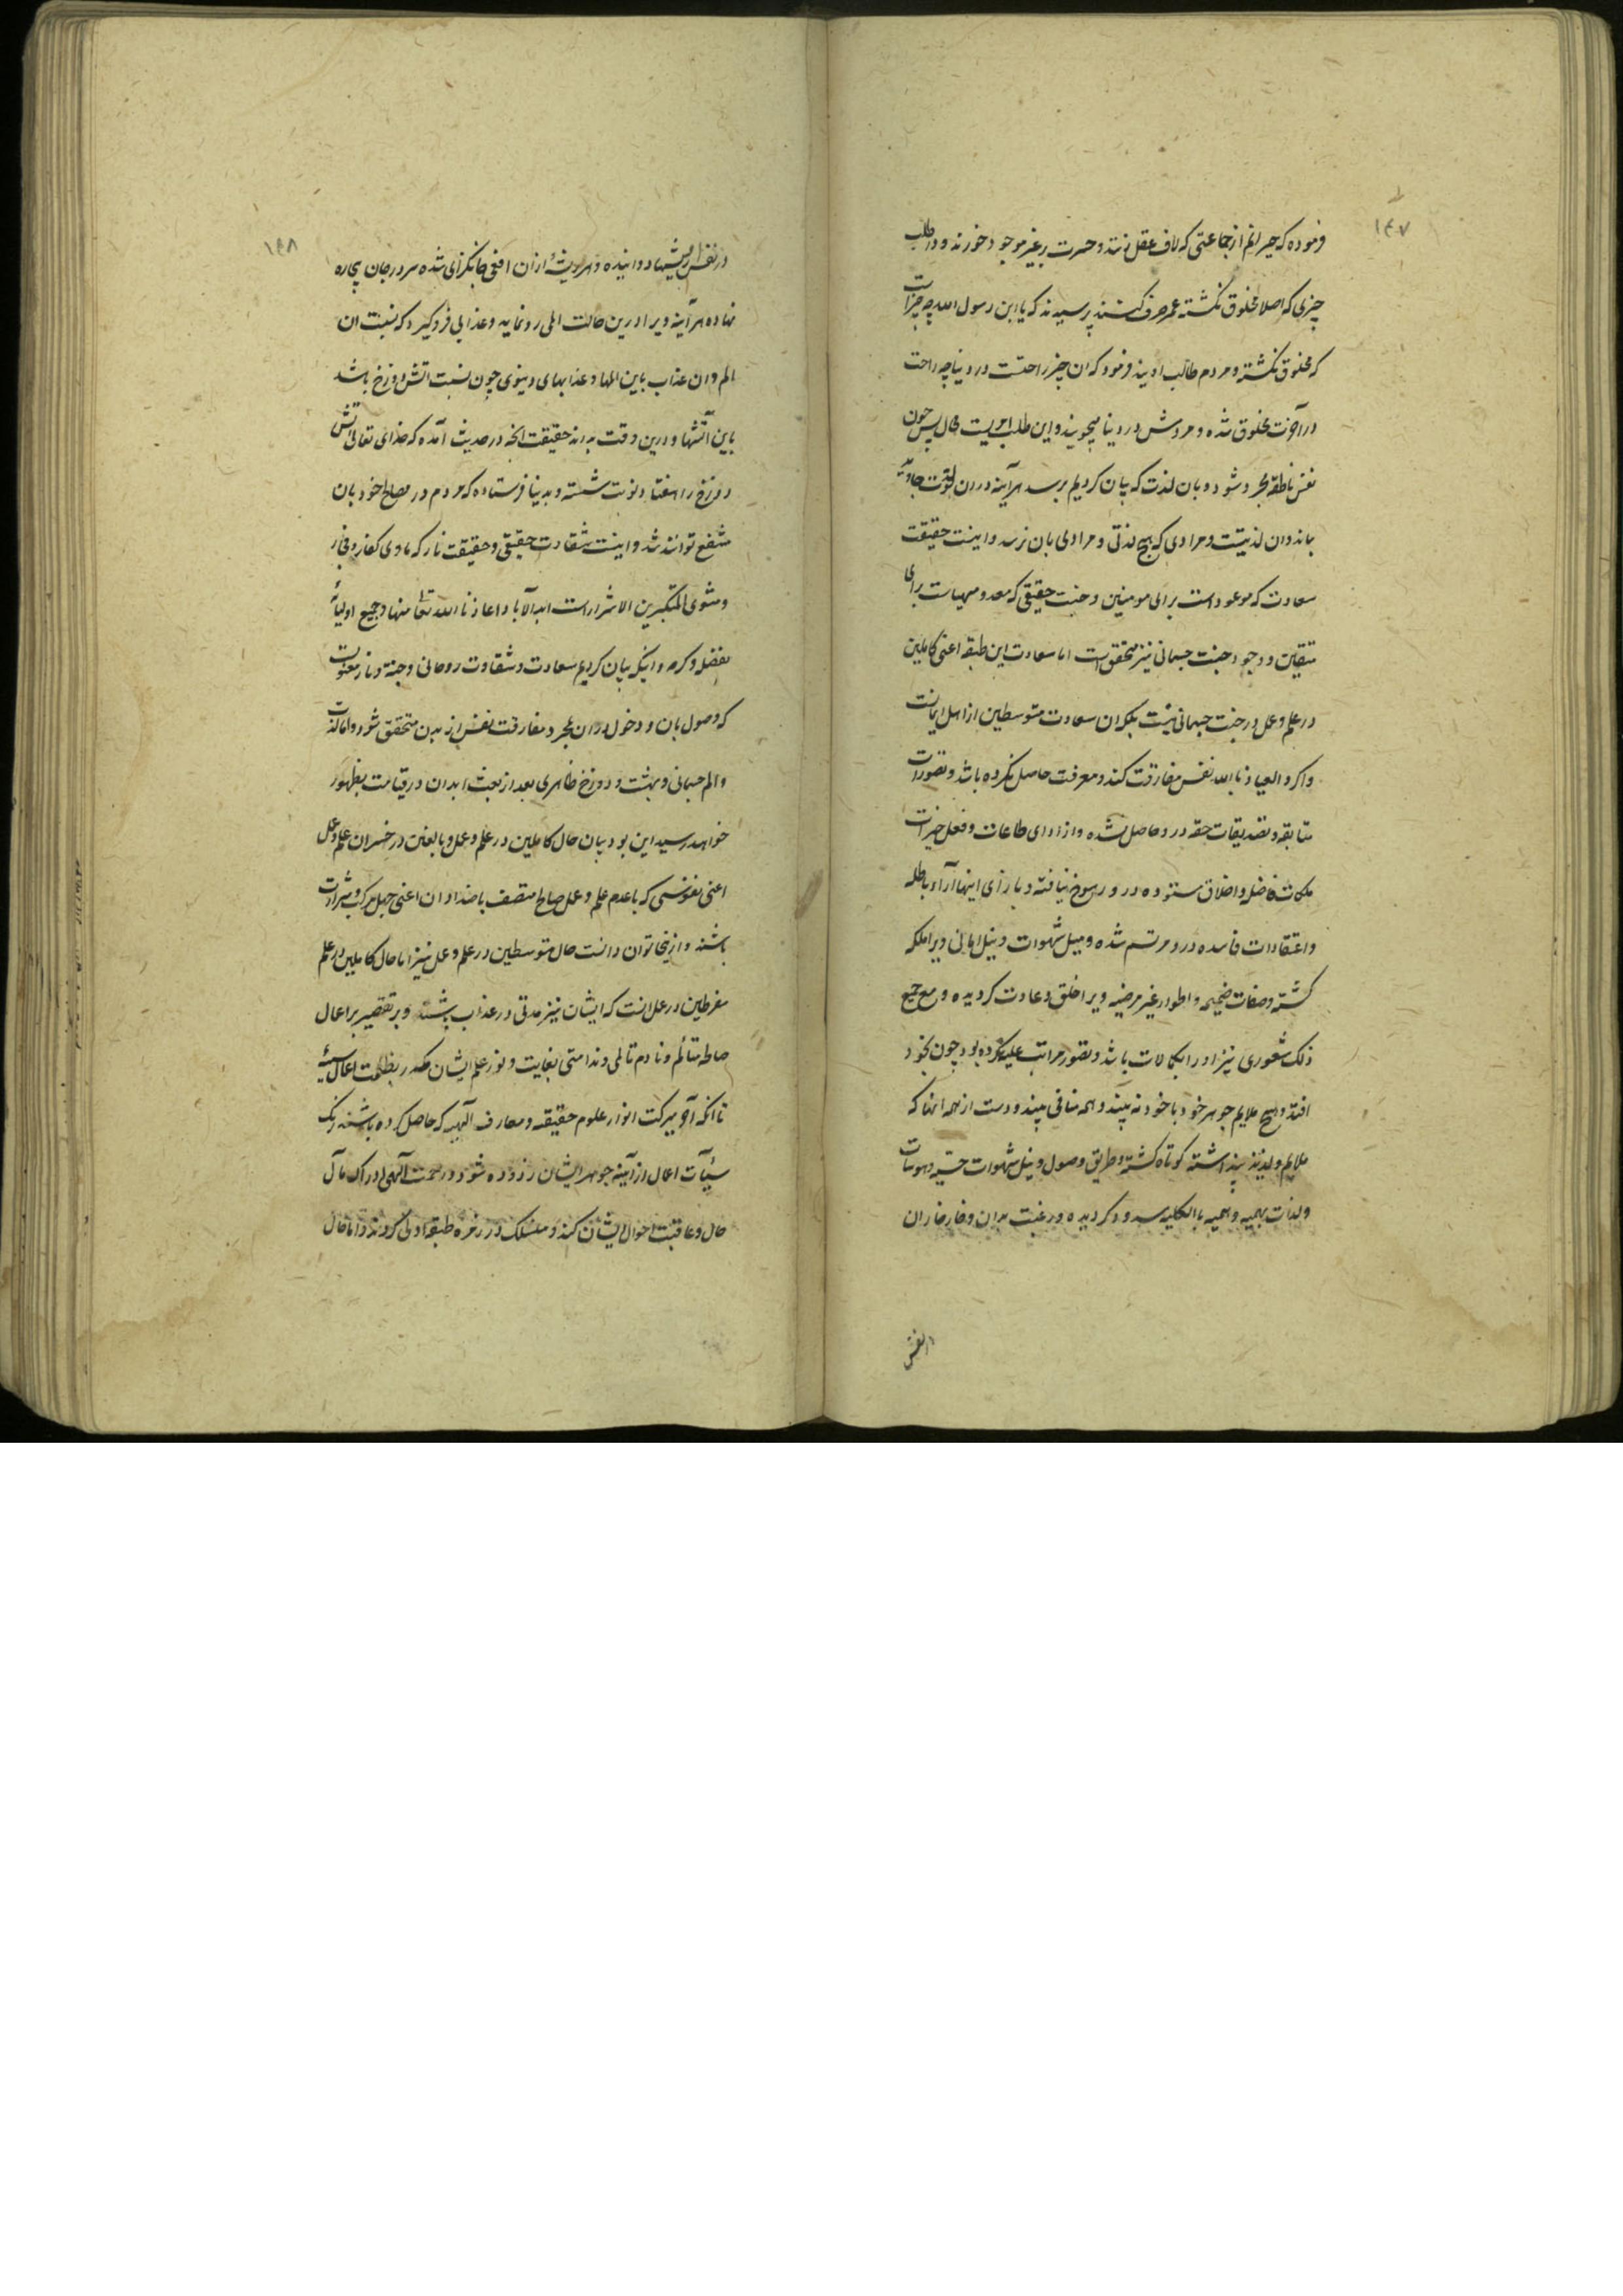 ۱۴۷
فرموده که حیرانم از جماعتی که لاف عقل زنند و حسرت بر غیر موجود خورند و در طلب
چیزی که اصلا مخلوق نگشته عمر صرف کنند پرسیدند که یا ابن رسول الله چه چیز است
که مخلوق نگشته و مردم طالب اویند فرمود که ان چیز راحتست در دنیا چه راحت
در آخرت مخلوق شده و مردمش در دنیا میجویند و این طلب امریست محال پس چون
نفس ناطقه مجرد شود و بان لذت که بیان کردیم برسد هر آینه در ان لذت جاوید
بماند و ان لذتیست و مرادی که هیچ لذتی و مرادی بان نرسد و اینست حقیقت
سعادت که موعود است برای مومنین و جنت حقیقی که معد و مهیاست برای
متقین و وجود جنت جسمانی نیز متحقق است اما سعادت این طبقه اعنی کاملین
در علم و عمل در جنت جسمانی نیست بلکه ان سعادت متوسطین از اهل ایمانست
و اگر و العیاذ بالله نفس مفارقت کند و معرفت حاصل نکرده باشد و تصورات
مطابقه و تصدیقات حقه در و حاصل نشده و از ادای طاعات و فعل خیرات
ملکات فاضله و اخلاق ستوده در و رسوخ نیافته و بازای اینها آراء باطله
و اعتقادات فاسده در و مرتسم شده و میل شهوات و نیل امانی ویرا ملکه
گشته و صفات ذمیمه و اطوار غیر مرضیه ویرا خلق و عادت گردیده و مع جمیع
ذلک شعوری نیز او را بکمالات باشد و تصور مراتب علیه کرده بود چون بخود
افتد و هیچ ملایم جوهر خود با خود نه بیند و همه منافی بیند و دست از همه انها که
ملایم و لذیذ پنداشته کوتاه گشته و طریق وصول و نیل شهوات حسیه و هوسات
و لذات بهیمیه و وهمیه بالکلیه مسدود گردیده و رغبت بدان و خارخار ان
در نفس
۱۴۸
در نفس ریشها دوانیده و هر ریشهٔ از ان افعی جانگزای شده سر در جان بیچاره
نهاده هر آینه ویرا درین حالت المی رو نماید و عذابی فرو گیرد که نسبت ان
الم و ان عذاب باین المها و عذابهای دنیوی چون نسبت اتش دوزخ باشد
باین آتشها و درین وقت بداند حقیقت انچه در حدیث آمده که خدای تعالی اتش
دوزخ را هفتاد نوبت شسته و بدنیا فرستاده که مردم در مصالح خود بان
منتفع توانند شد و اینست شقاوت حقیقی و حقیقت نار که ماوی کفار و فجار
و مثوی المتکبرین الاشرار است ابد الآباد اعاذنا الله تعالی منها و جمیع اولیائه
بفضله و کرمه و اینکه بیان کردیم سعادت و شقاوت روحانی و جنة و نار معنویست
که وصول بان و دخول در ان بمجرد مفارقت نفس از بدن متحقق شود و اما لذت
و الم جسمانی و بهشت و دوزخ ظاهری بعد از بعث ابدان در قیامت بظهور
خواهد رسید این بود بیان حال کاملین در علم و عمل و بالغین در خسران علم و عمل
اعنی نفوسی که با عدم علم و عمل صالح متصف باضداد ان اعنی جهل مرکب و شرارت
باشند و ازینجا توان دانست حال متوسطین در علم و عمل نیز اما حال کاملین در علم
مفرطین در عمل انست که ایشان نیز مدتی در عذاب باشند و بر تقصیر بر اعمال
صالحه متألم و نادم تالمی و ندامتی بغایت و نور علم ایشان مکدر بظلمت اعمال سیئه
تا انکه آخر ببرکت انوار علوم حقیقه و معارف الهیه که حاصل کرده باشند زنگ
سیئآت اعمال از آینه جوهر ایشان زدوده شود و رحمت آلهی ادراک مآل
حال و عاقبت احوال ایشان کند و منسلک در زمره طبقه اولی گردند و اما حال